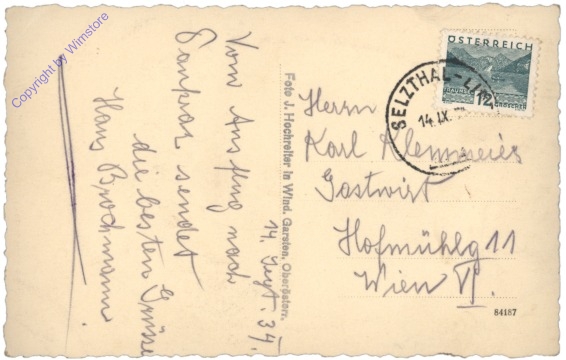 Copyright by Wimstore
Vom Ausflug nach
sendet
die besten Grüsse
Hans Brochmann
14. Sept. 34.
Foto J. Hochreiter in Wind. Garsten, Oberösterr.
ÖSTERREICH
12 GROSCHEN
SELZTHAL-LINZ
14.IX.
Herrn
Karl Klemmeier
Gastwirt
Hofmühlg 11
Wien VI.
84187